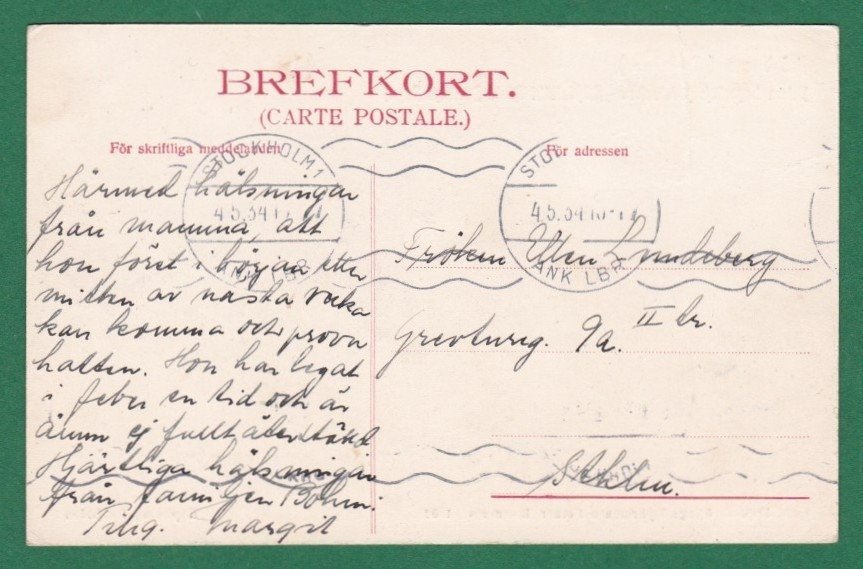 BREFKORT.
(CARTE POSTALE.)
För skriftliga meddelanden
För adressen
STOCKHOLM 1
4.5.34
LBR
STO
4.5.34 16-17
ANK LBR
Härmed hälsningar
från mamma, att
hon först i början eller
mitten av nästa vecka
kan komma och prova
hatten. Hon har legat
i feber en tid och är
ännu ej fullt återställd
Hjärtliga hälsningar
från familjen Bohm.
Tillg. Margit
Fröken Ellen Lundeberg
Grevtureg. 9a. II tr.
Sthlm.